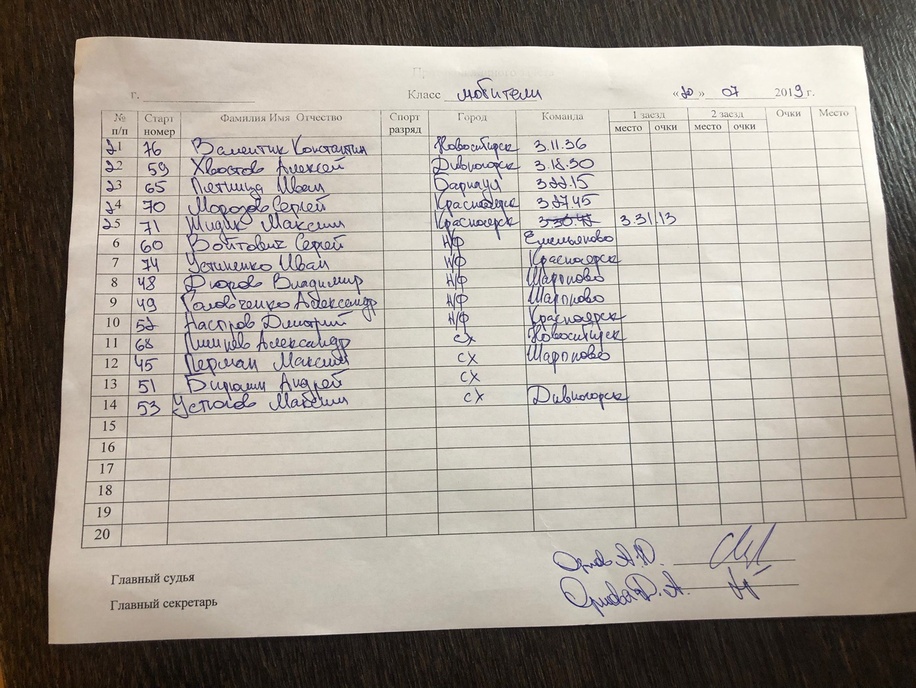 г.
Класс любители «20» 07 2019 г.
№ п/п Старт номер Фамилия Имя Отчество Спорт разряд Город Команда 1 заезд место очки 2 заезд место очки Очки Место
21 76 Валентик Константин Новосибирск 3.11.36
22 59 Хвостов Алексей Дивногорск 3.18.30
23 65 Пятница Иван Барнаул 3.22.15
24 70 Морозов Сергей Красноярск 3.27.45
25 71 Максим Красноярск 3.31.13
6 60 Войтович Сергей Н/Ф Емельяново
7 74 Устиненко Иван Н/Ф Красноярск
8 48 Владимир Н/Ф Шарыпово
9 49 Головченко Александр Н/Ф Шарыпово
10 52 Дмитрий Н/Ф Красноярск
11 68 Александр сх Новосибирск
12 45 Перман Максим сх Шарыпово
13 51 Андрей сх
14 53 Устюгов Максим сх Дивногорск
15
16
17
18
19
20
Главный судья
Главный секретарь